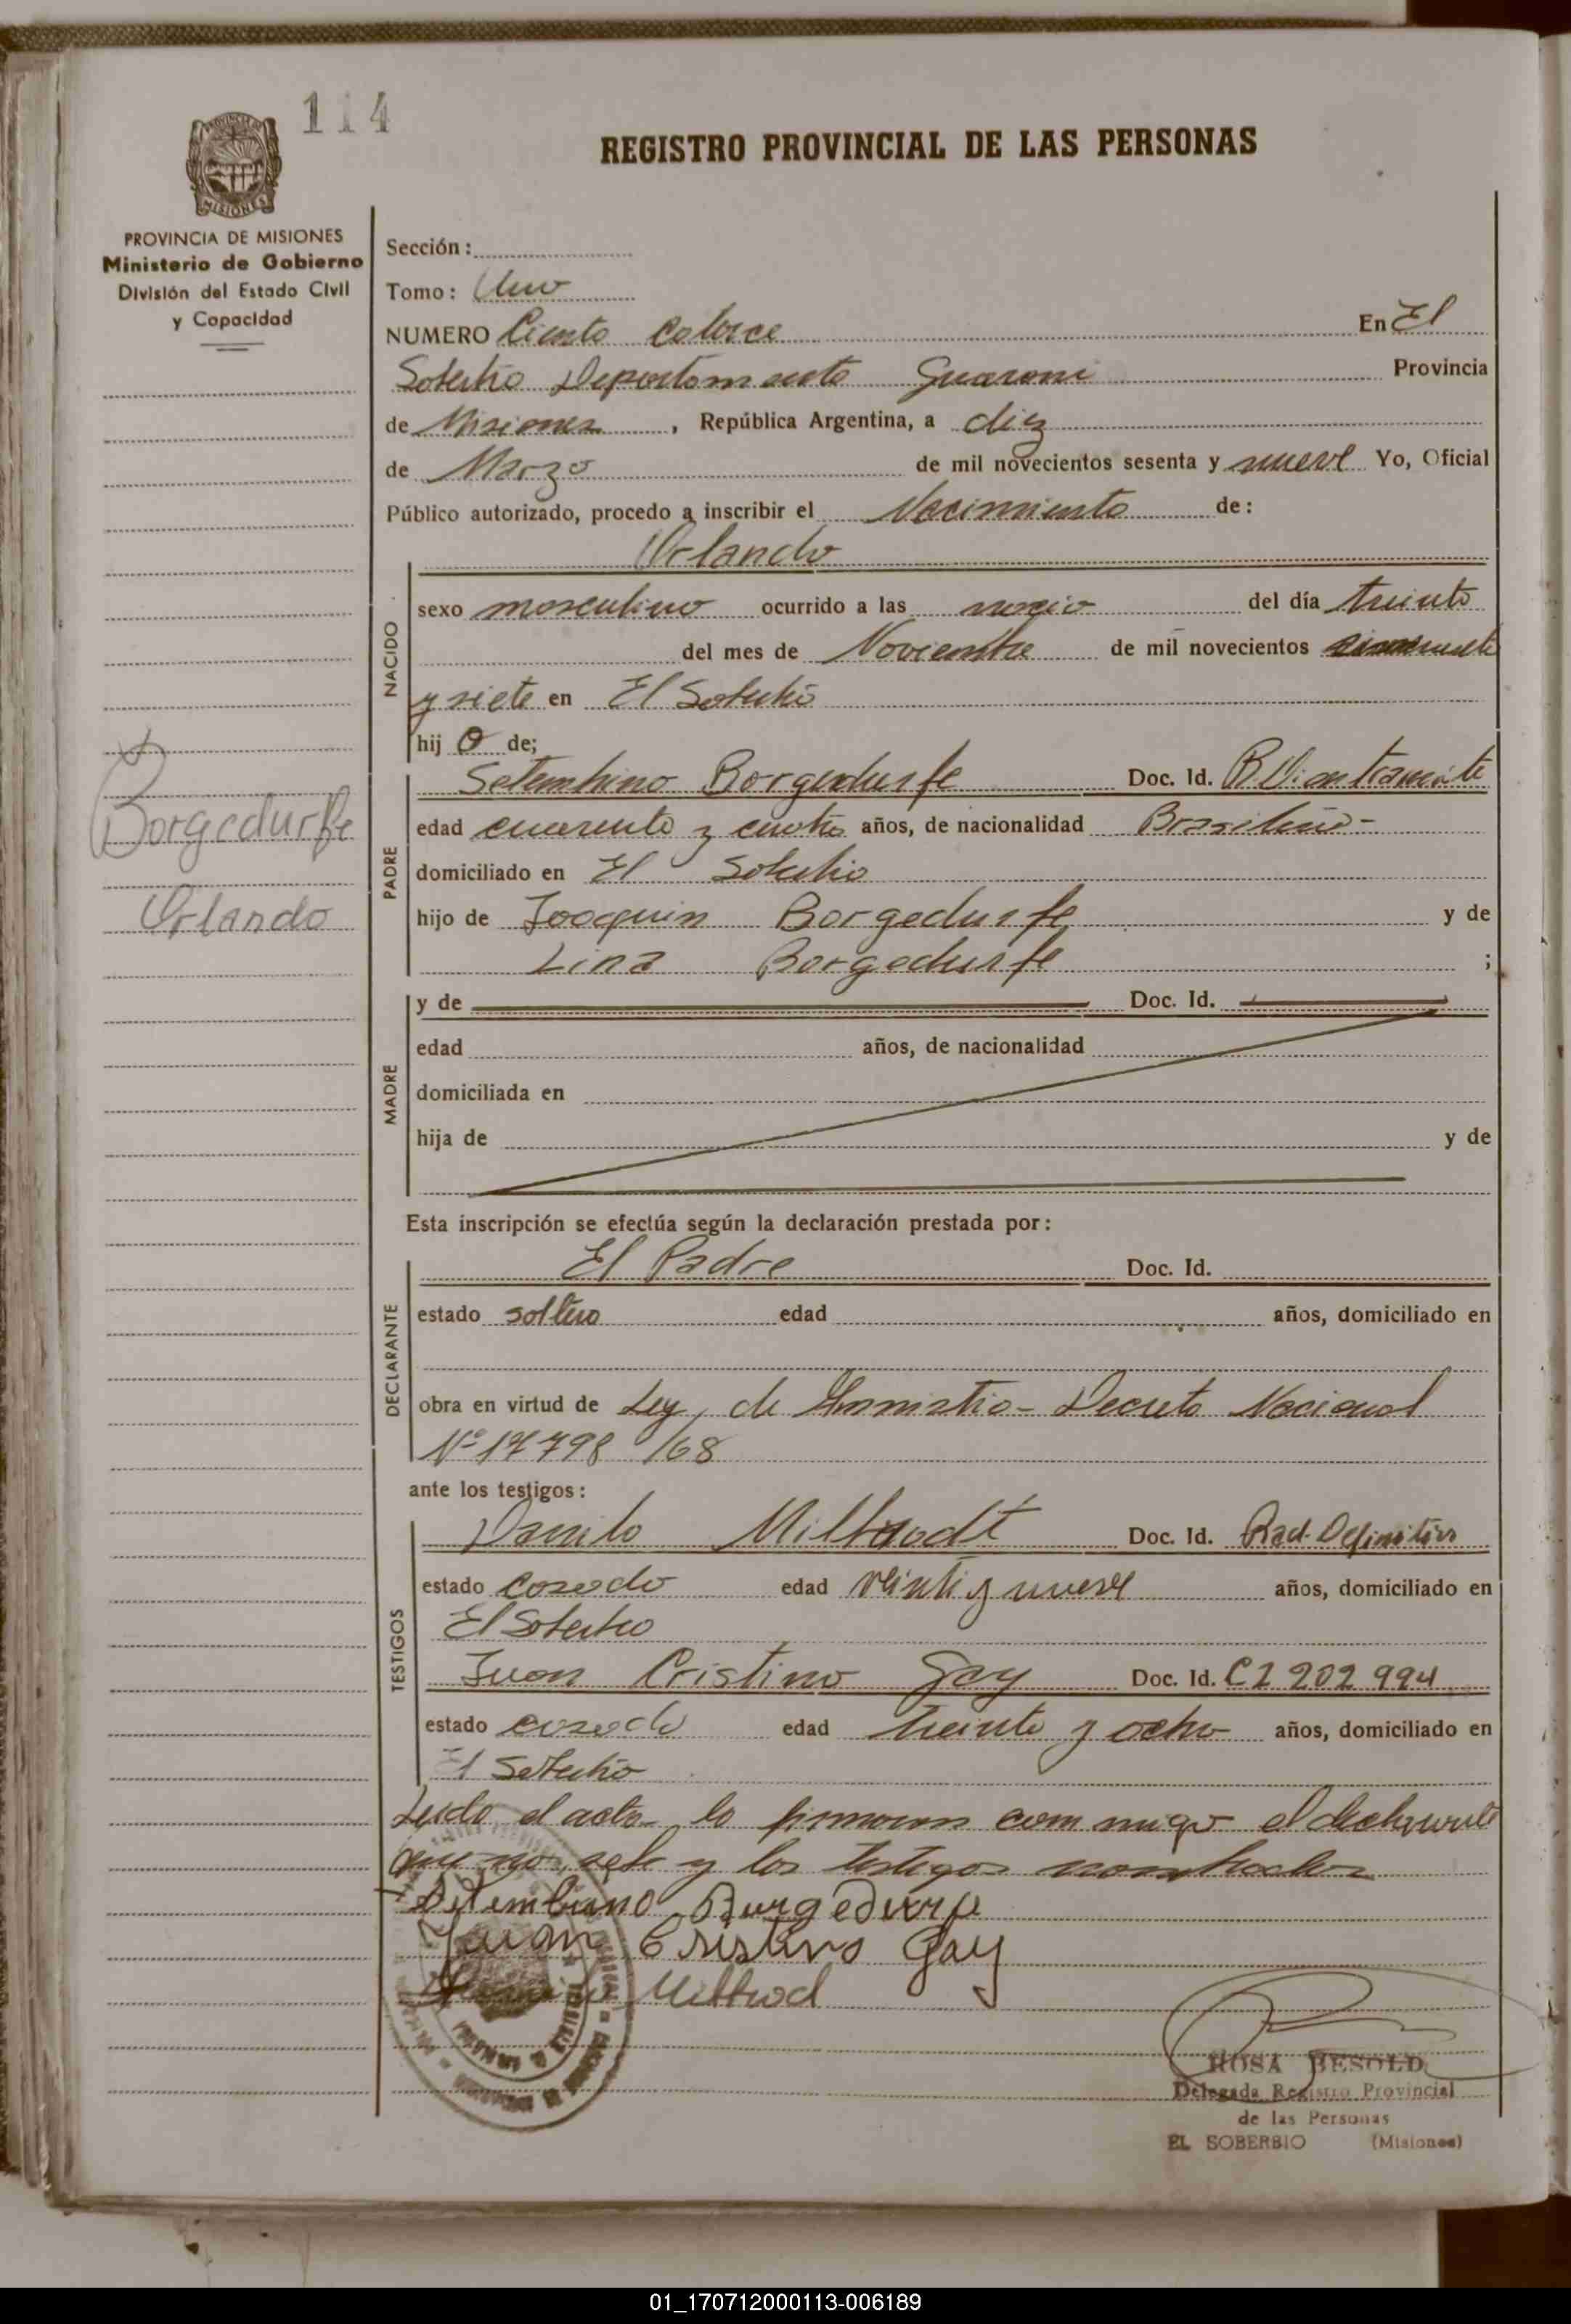 114
REGISTRO PROVINCIAL DE LAS PERSONAS
MISIONES
PROVINCIA DE MISIONES
Ministerio de Gobierno
División del Estado Civil
y Capacidad
Sección:
Tomo: Uno
NUMERO Ciento Catorce En El
Soberbio Departamento Guarani Provincia
de Misiones, República Argentina, a diez
de Marzo de mil novecientos sesenta y nueve Yo, Oficial
Público autorizado, procedo a inscribir el Nacimiento de:
Orlando
NACIDO
sexo masculino ocurrido a las del día treinta
del mes de Noviembre de mil novecientos cincuenta
y siete en El Soberbio
hij o de;
Borgedurfe
Orlando
PADRE
Setembrino Borgedurfe Doc. Id. R. V. en tramite
edad cuarenta y cuatro años, de nacionalidad Brasileño-
domiciliado en El Soberbio
hijo de Joaquin Borgedurfe y de
Lina Borgedurfe ;
MADRE
y de Doc. Id.
edad años, de nacionalidad
domiciliada en
hija de y de
Esta inscripción se efectúa según la declaración prestada por:
DECLARANTE
El Padre Doc. Id.
estado soltero edad años, domiciliado en
obra en virtud de Ley, de Amnistia- Decreto Nacional
Nº 17798/68
ante los testigos:
TESTIGOS
Danilo Doc. Id. Rad. Definitiva
estado casado edad veinti y nueve años, domiciliado en
El Soberbio
Juan Cristino Gay Doc. Id. C I 202 994
estado casado edad treinta y ocho años, domiciliado en
El Soberbio
Leida el acta la firmaron con migo el declarante
y los testigos nombrados
Setembrino Burgedurfe
Juan Cristino Gay
ROSA BESOLD
Delegada Registro Provincial
de las Personas
EL SOBERBIO (Misiones)
01_170712000113-006189